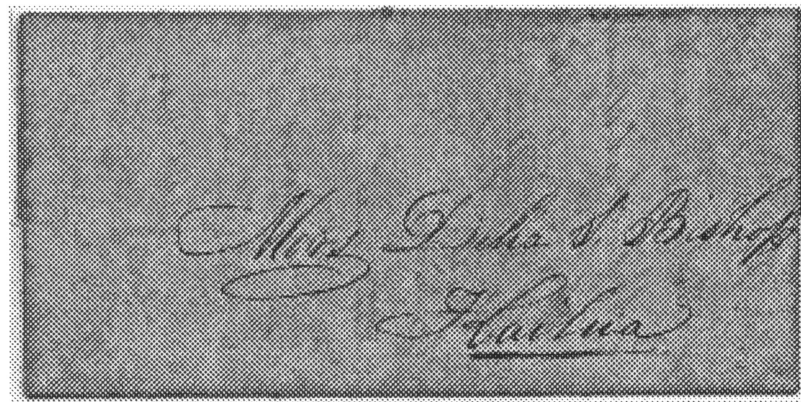 Mrs Delia S. Bishop
Kailua